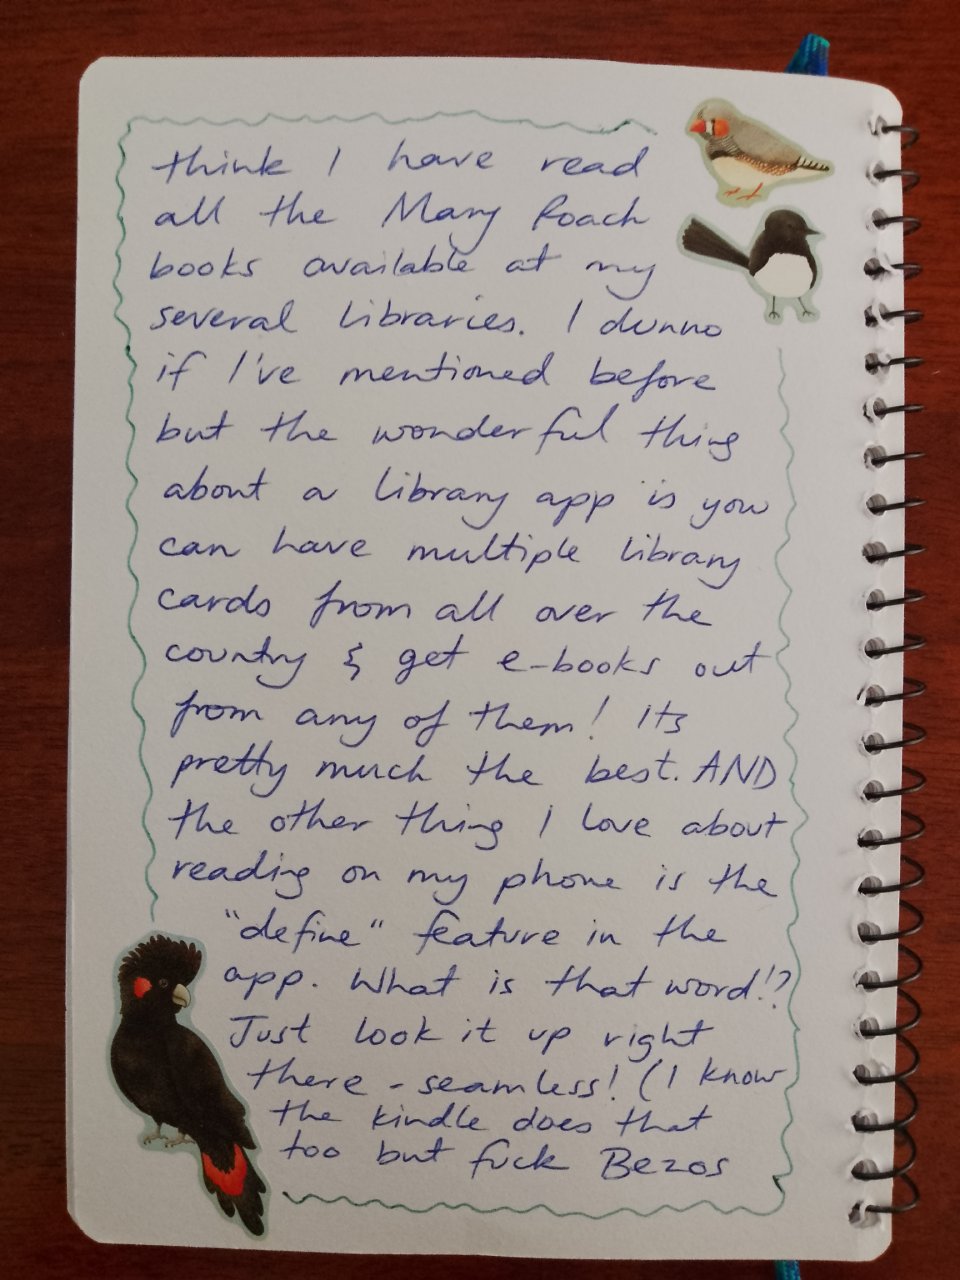 think I have read
all the Mary Roach
books available at my
several libraries. I dunno
if I've mentioned before
but the wonderful thing
about a library app is you
can have multiple library
cards from all over the
country & get e-books out
from any of them! Its
pretty much the best. AND
the other thing I love about
reading on my phone is the
"define" feature in the
app. What is that word!?
Just look it up right
there - seamless! (I know
the kindle does that
too but fuck Bezos